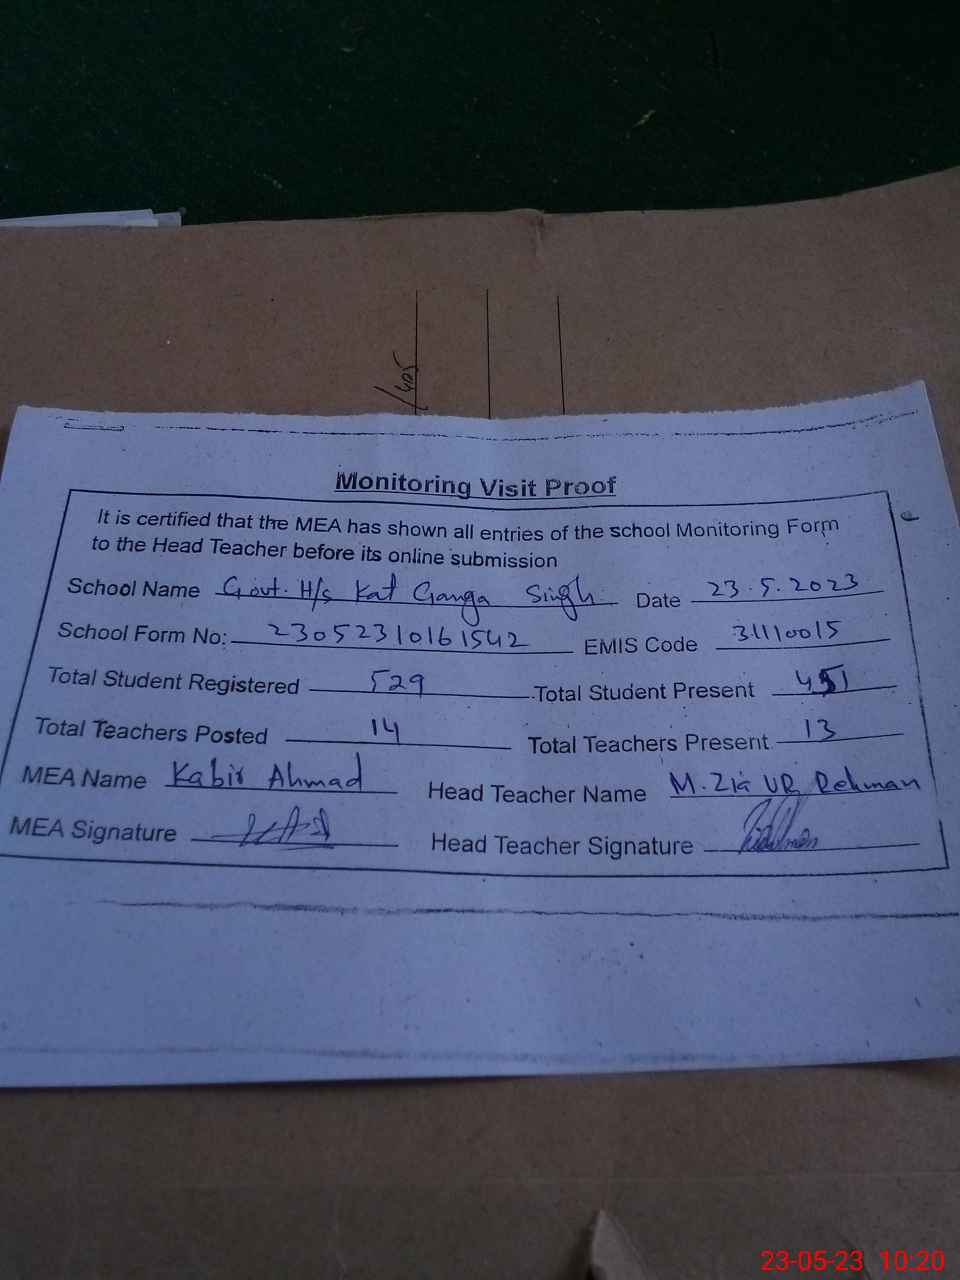 /405
Monitoring Visit Proof
It is certified that the MEA has shown all entries of the school Monitoring Form
to the Head Teacher before its online submission
School Name Govt. H/s Kat Ganga Singh Date 23.5.2023
School Form No: 23052310161542 EMIS Code 31110015
Total Student Registered 529 Total Student Present 451
Total Teachers Posted 14 Total Teachers Present 13
MEA Name Kabir Ahmad Head Teacher Name M. Zia UR Rehman
MEA Signature Head Teacher Signature
23-05-23 10:20